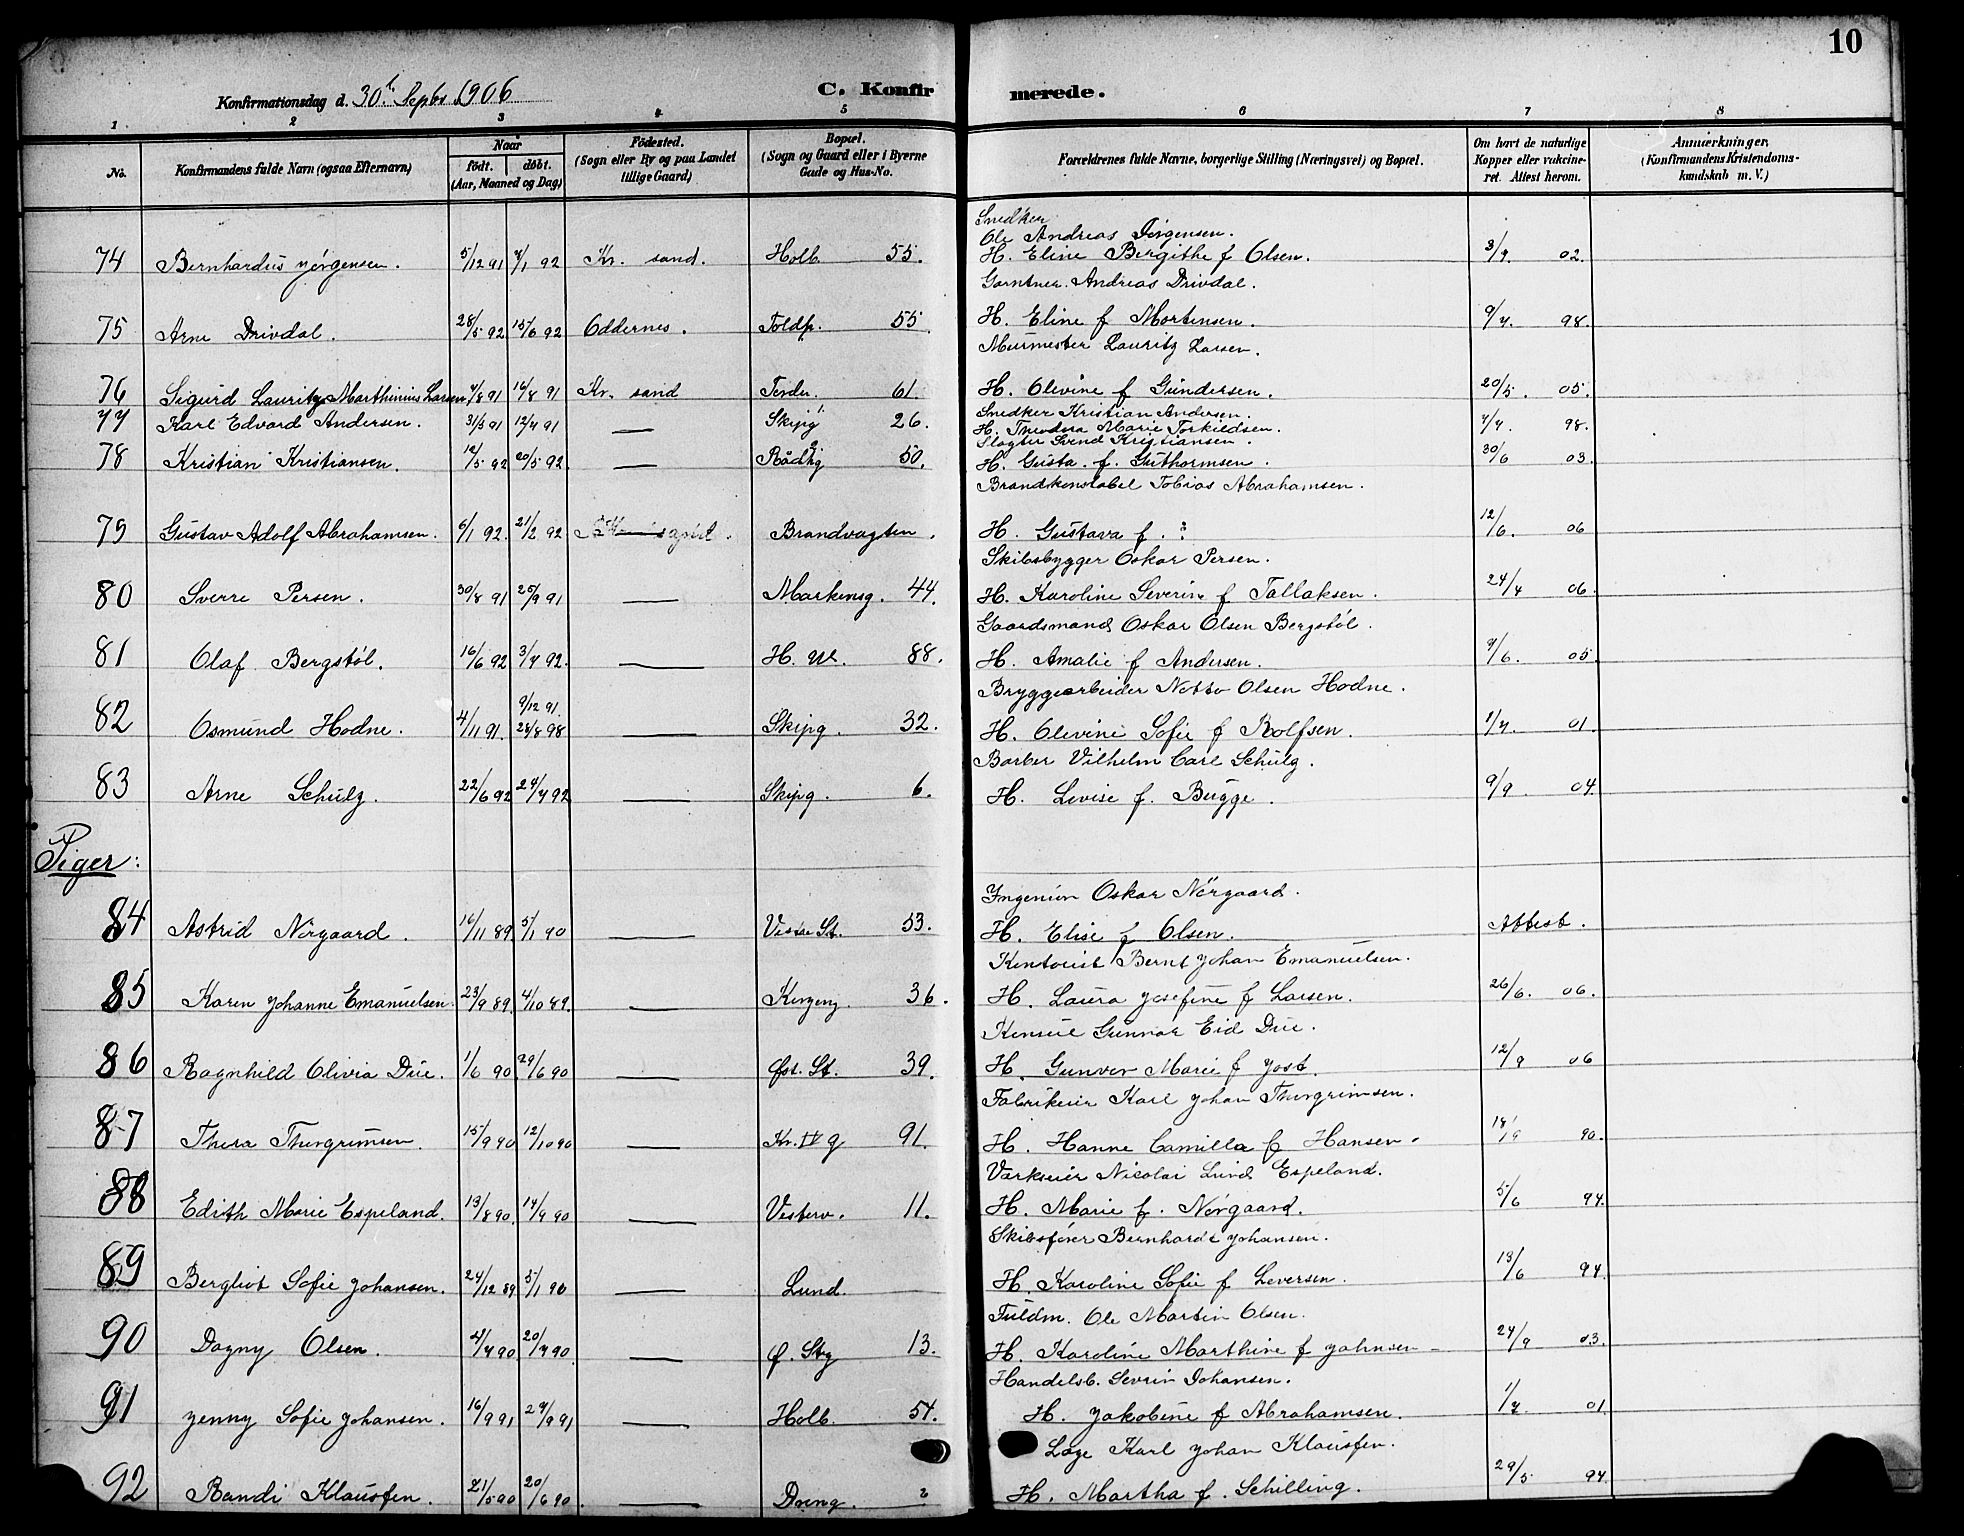 10
Konfirmationsdag d. 30te Septbr 1906 C. Konfirmerede.
1 2 3 4 5 6 7 8
No. Konfirmandens fulde Navn (ogsaa Efternavn) Naar födt. döbt. (Aar, Maaned og Dag) Födested. (Sogn eller By og paa Landet tillige Gaard) Bopæl. (Sogn og Gaard eller i Byerne Gade og Hus-No. Forældrenes fulde Navne, borgerlige Stilling (Næringsvei) og Bopæl. Om havt de naturlige Kopper eller vakcineret. Attest herom. Anmærkninger. (Konfirmandens Kristendomskundskab m. V.)
Snedker
Ole Andreas Jörgensen.
74 Bernhardus Jörgensen. 5/12 91 7/1 92 Kr. sand. Holb. 55. H. Eline Bergithe f Olsen. 3/9. 02.
Gartner. Andreas Drivdal.
75 Arne Drivdal. 28/5 92 15/6 92 Oddernes. Toldb. 55. H. Eline f Mortensen. 9/7. 98.
Murmester Lauritz Larsen.
76 Sigurd Lauritz Marthinius Larsen 7/8 91 16/8 91 Kr. sand Torden. 61. H. Olevine f Gundersen. 20/5. 05.
Snedker Kristian Andersen.
77 Karl Edvard Andersen. 31/3 91 12/4 91 — Skipg 26. H. Theodora Marie Torkildsen. 7/7. 98.
Slagter Svend Kristiansen.
78 Kristian Kristiansen. 12/5 92 20/5 92 — Rådhg 50. H. Gusta. f. Guthormsen. 30/6 03.
Brandkonstabel Tobias Abrahamsen.
79 Gustav Adolf Abrahamsen. 5/1 92. 21/2 92 Brandvagten. H. Gustava f. ? 12/6. 06
Skibsbygger Oskar Persen.
80 Sverre Persen. 30/8 91 25/9 91 — Markensg. 44. H. Karoline Severine f Tallaksen. 24/4 06.
Gaardsmand Oskar Olsen Bergstöl.
81 Olaf Bergstöl. 16/6 92 3/7 92. — H. W. 88. H. Amalie f Andersen. 9/6. 05.
Bryggearbeider Notto Olsen Hodne.
9/12 91.
82 Osmund Hodne. 4/11 91. 28/8 98 — Skipg. 32. H. Olevine Sofie f Rolfsen. 1/7. 01.
Barber Vilhelm Carl Schulz.
83 Arne Schulz. 22/6 92 24/7 92 — Skipg. 6. H. Lovise f. Bugge. 9/9. 04.
Piger:
Ingeniör Oskar Nörgaard.
84 Astrid Nörgaard. 16/11 89 5/1 90 — Vestre St. 53. H. Elise f Olsen. Attest.
Kontorist Bernt Johan Emanuelsen.
85 Karen Johanne Emanuelsen. 23/9 89. 4/10 89. — Kongeng. 36. H. Laura Josefine f Larsen. 26/6. 06.
Konsul Gunnar Eid Due.
86 Ragnhild Olivia Due. 1/6 90 29/6 90 — Øst. St. 39. H. Gunvor Marie f Jost. 12/9 06
Fabrikeier Karl Johan Thorgrimsen.
87 Thora Thorgrimsen. 15/9 90 12/10 90 — Kr. IV g 91. H. Hanne Camilla f Hansen. 18/9 90.
Værkseier Nicolai Lund Espeland.
88 Edith Marie Espeland. 13/8 90. 14/9 90 — Vesterv. 11. H. Marie f. Nörgaard. 5/6 94.
Skibsförer Bernhardt Johansen.
89 Bergliot Sofie Johansen. 24/12 89 5/1 90 — Lund. H. Karoline Sofie f Leversen. 13/6 94.
Fuldm. Ole Martin Olsen.
90 Dagny Olsen. 4/4 90 20/4 90. — Ø. Stg 13. H. Karoline Marthine f Johnsen 24/9 03.
Handelsb. Sevrin Johansen.
91 Jenny Sofie Johansen. 16/9 91 29/9 91 — Holb. 54. H. Jakobine f Abrahamsen. 1/7. 01.
Læge Karl Johan Klausfen.
92 Randi Klausfen. 21/5 90 20/6 90. — Dröng. ? H. Martha f. Schilling. 29/5 94.